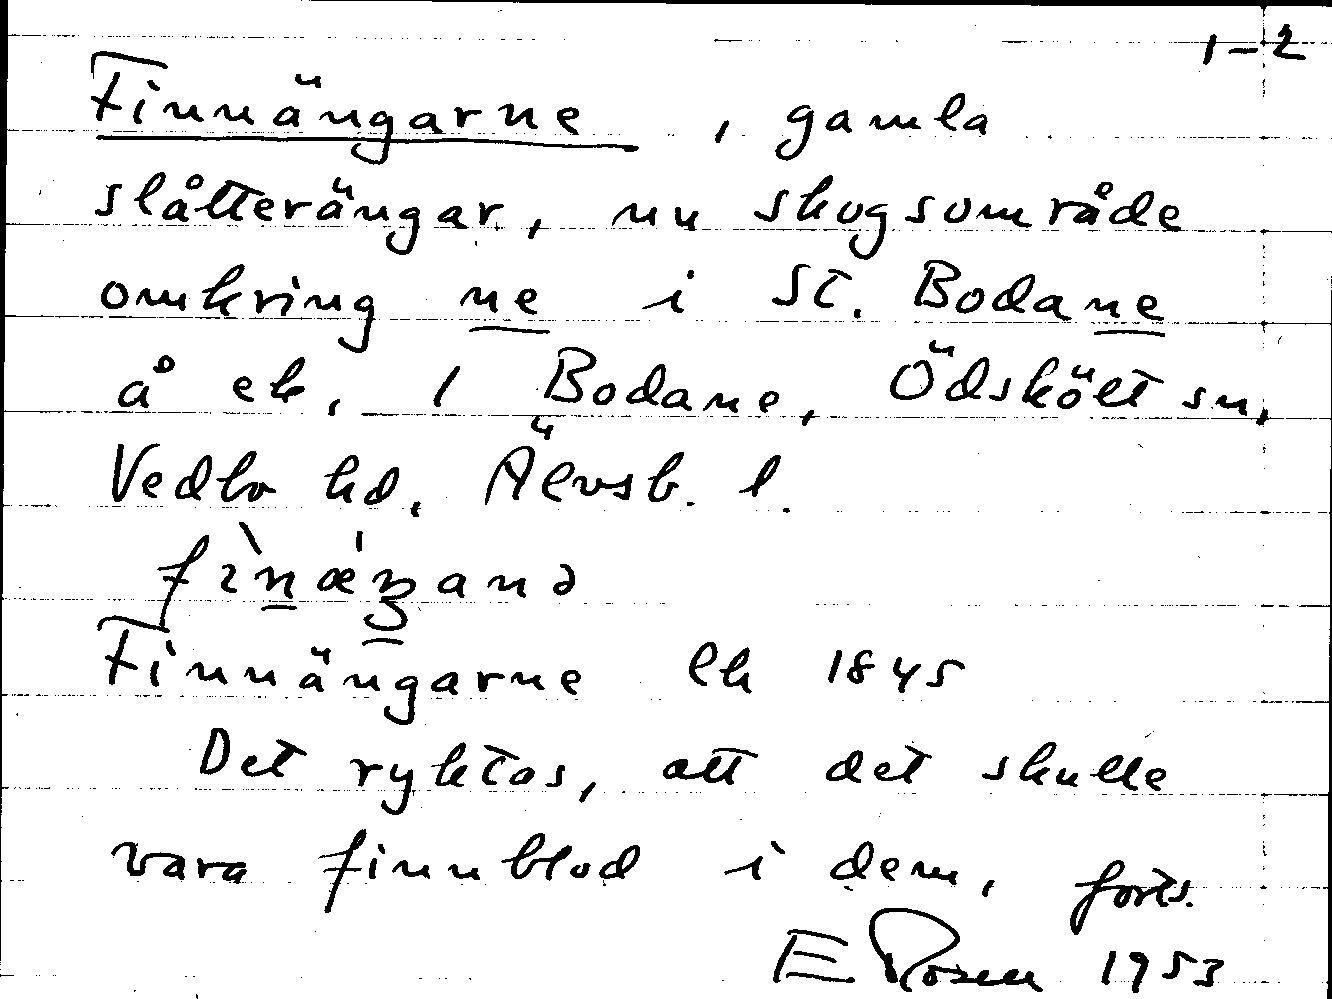 1-2
Finnängarne, gamla
slåtterängar, nu skogsområde
omkring ne i St. Bodane
å ek. 1 Bodane, Ödskölt sn,
Vedbo hd, Älvsb. l.
Finnängarne Ek 1845
Det ryktas, att det skulle
vara finnblod i dem, forts.
E Rosen 1953